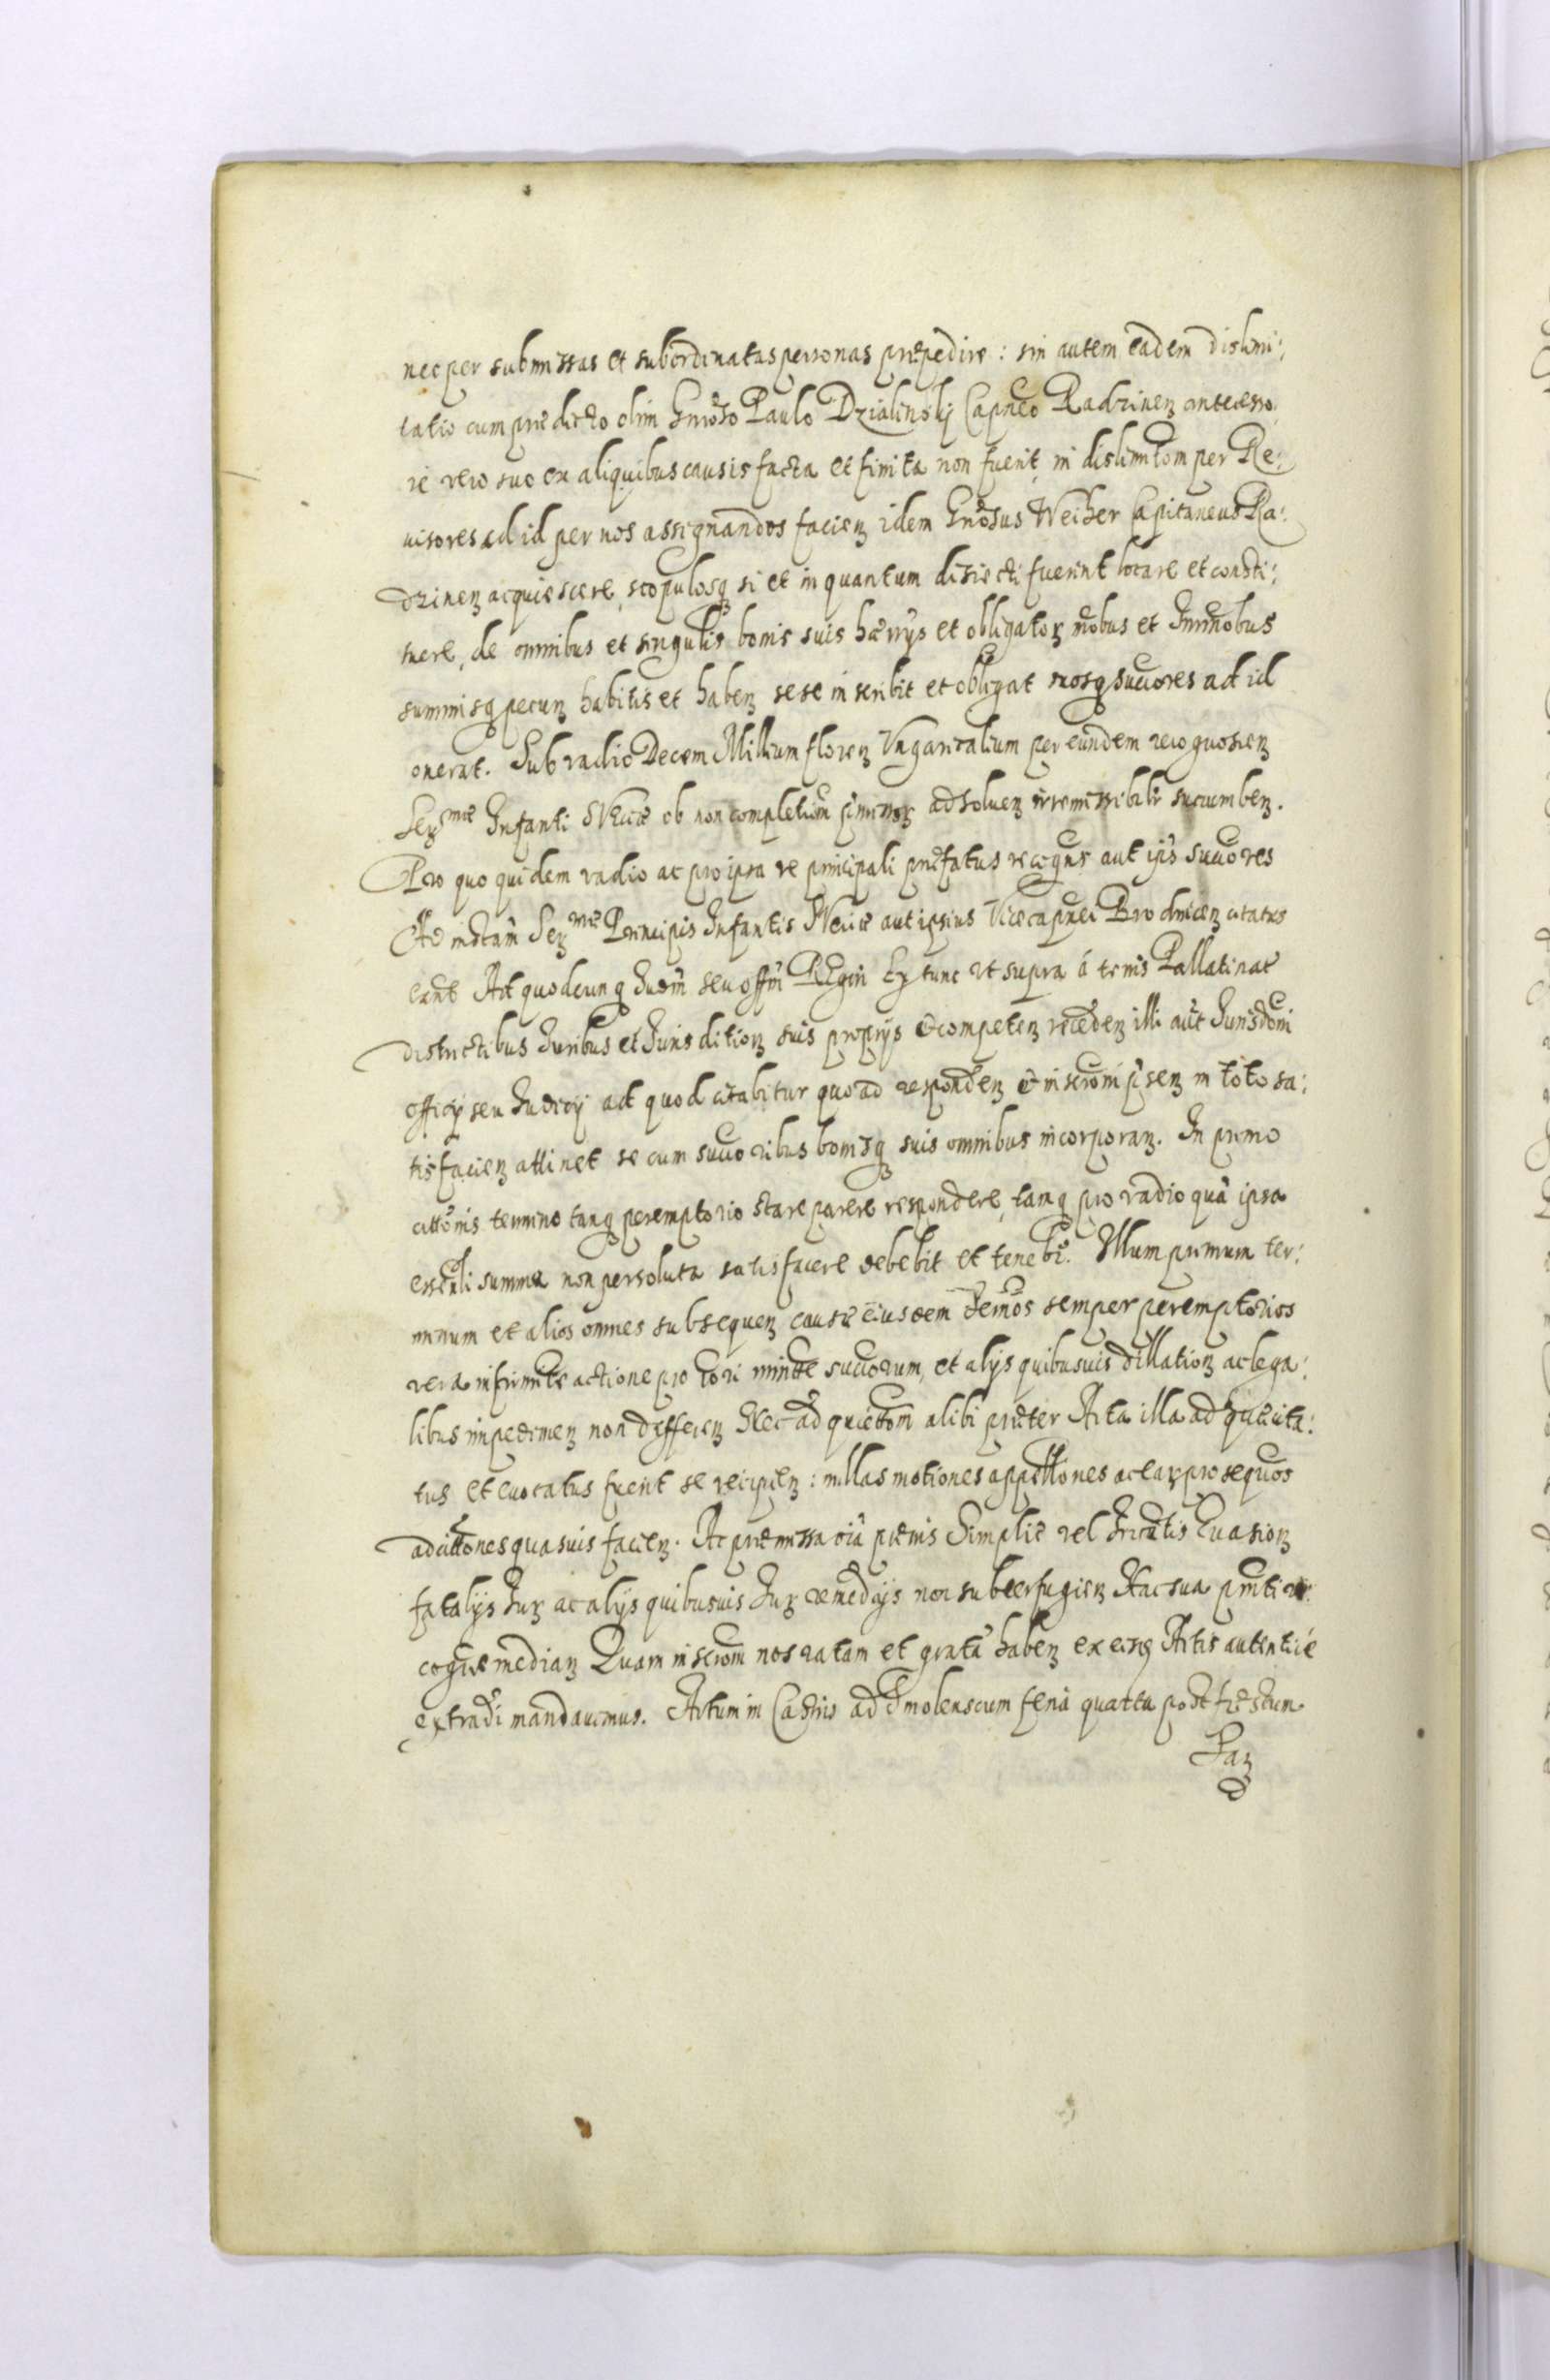 nec per submissas et subordinatas personas præpedire: sin autem eadem dislimi:
tatio cum prædicto olim Gnoso Paulo Dzialinskij Capneo Radzinen antecesso
re vero suo ex aliquibus causis facta et finita non fuerit, in dislimitom per Re:
visores ad id per nos assignandos facien idem Gnosus Weiher Capitaneus Ra:
dzinen acquiescere, scopulosq si et in quantum disiecti fuerint locare et consti:
tuere, de omnibus et singulis bonis suis hærijs et obligator mobus et Immobus
summisq pecun habitis et haben sese inscribit et obligat suosq succores ad id
onerat. Sub vadio Decem Millium floren Vngaricalium per eundem recognoscen
Serme Infanti Sveciæ ob non completiom pmissor adsoluen irremissibilr succumben.
Pro quo quidem vadio ac pro ipsa re principali præfatus recogns aut ijs succores
Ad instam Serme Principis Infantis Sveciæ aut ipsius Vicecapnei Brodnicen citatus
erint Ad quodcunq Iudm seu offm Regni Ex tunc vt supra á terris Pallatinat
districtibus Iuribus et Iurisdition suis proprijs et competen receden illi aut Iurisdoni
officij seu Iudicij ad quod citabitur quoad responden et inscroni psen in toto sa:
tisfacien attinet se cum succoribus bonisq suis omnibus incorporan. In primo
cittonis termino tanq peremptorio stare parere respondere, tamq pro vadio quâ ipsa
essenli summa non persoluta satisfacere debebit et tenebr. Illum primum ter:
minum et alios omnes subsequen causæ eiusdem temos semper peremptorios
vera infirmite actione pro tori minte succorum, et alijs quibusuis dillation ac lega:
libus impedimen non differen Nec ad quiettom alibi præter Acta illa ad quæ cita:
tus et euocatus fuerit se recipien: nullas motiones appellones ac ear prosequos
ad cittones quasuis facien. Ac præmissa oia præmis Simplic vel Iricatis Euasion
fatalijs Iur ac alijs quibusuis Iur remedijs non subterfugien Hac sua pnti re:
cogne median Quam inscrom nos ratam et gratã haben ex eisq Actis autenticé
extradi mandauimus. Actum in Castris ad Smolenscum feria quarta post festum
Pas